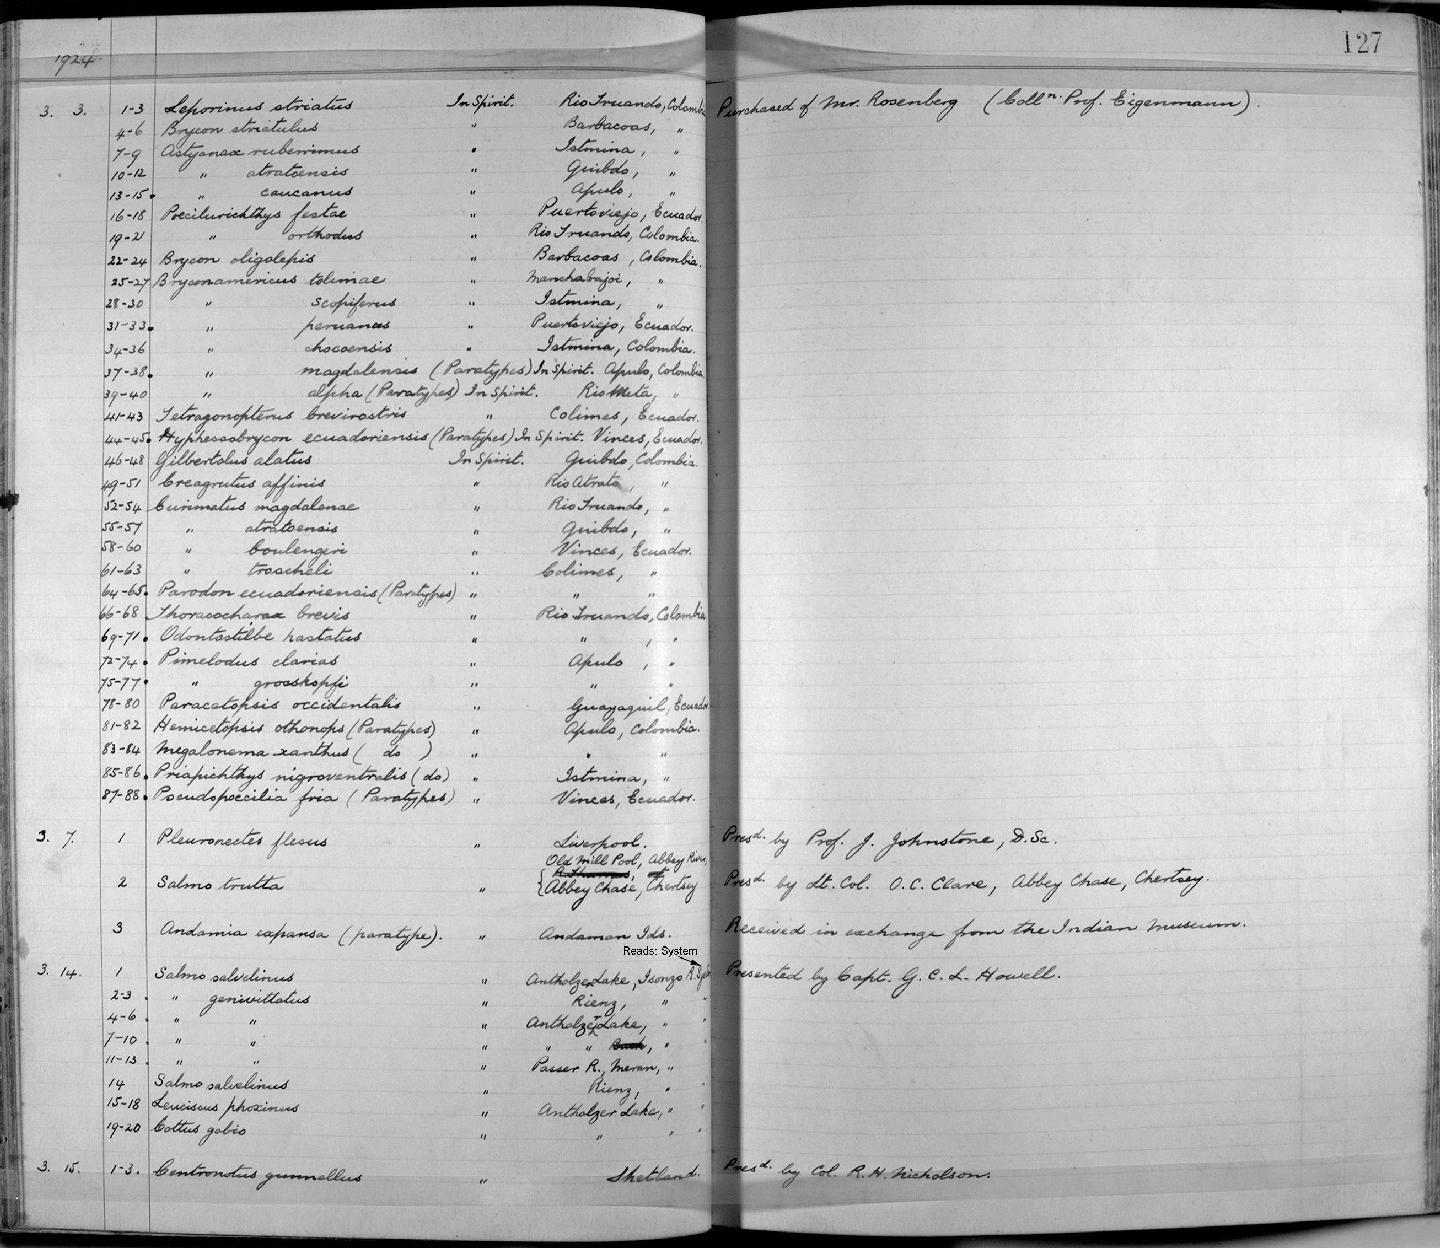 1924
127
3. 3. 1-3 Leporinus striatus In Spirit. Rio Truando, Colombia Purchased of Mr. Rosenberg (Colln. Prof. Eigenmann).
4-6 Brycon striatulus " Barbacoas, "
7-9 Astyanax ruberrimus " Istmina, "
10-12 " atratoensis " Quibdo, "
13-15. " caucanus " Apulo, "
16-18 Poecilurichthys festae " Puertoviejo, Ecuador.
19-21 " orthodus " Rio Truando, Colombia.
22-24 Brycon oligolepis " Barbacoas, Colombia.
25-27 Bryconamericus tolimae " Manchabajoi, "
28-30 " scopiferus " Istmina, "
31-33. " peruanus " Puertoviejo, Ecuador.
34-36 " chocoensis " Istmina, Colombia.
37-38. " magdalensis (Paratypes) In Spirit. Apulo, Colombia
39-40 " alpha (Paratypes) In Spirit. Rio Meta, "
41-43 Tetragonopterus brevirostris " Colimes, Ecuador.
44-45. Hyphessobrycon ecuadoriensis (Paratypes) In Spirit. Vinces, Ecuador.
46-48 Gilbertolus alatus In Spirit. Quibdo, Colombia.
49-51 Creagrutus affinis " Rio Atrato, "
52-54 Curimatus magdalenae " Rio Truando, "
55-57 " atratoensis " Quibdo, "
58-60 " boulengeri " Vinces, Ecuador.
61-63 " troscheli " Colimes, "
64-65. Parodon ecuadoriensis (Paratypes) " " "
66-68 Thoracocharax brevis " Rio Truando, Colombia
69-71. Odontostilbe hastatus " " , "
72-74. Pimelodus clarias " Apulo , "
75-77. " grosskopfi " " "
78-80 Paracetopsis occidentalis " Guayaquil, Ecuador
81-82 Hemicetopsis othonops (Paratypes) " Apulo, Colombia.
83-84 Megalonema xanthus ( do ) " " "
85-86. Priapichthys nigroventralis (do) " Istmina, "
87-88. Pseudopoecilia fria (Paratypes) " Vinces, Ecuador.
3. 7. 1 Pleuronectes flesus " Liverpool. Presd. by Prof. J. Johnstone, D.Sc.
Old Mill Pool, Abbey River,
R. Thames,
2 Salmo trutta " Abbey Chase, Chertsey Presd. by Lt. Col. O.C. Clare, Abbey Chase, Chertsey.
3 Andamia expansa (paratype). " Andaman Ids. Received in exchange from the Indian Museum.
Reads: System
3. 14. 1 Salmo salvelinus " Antholzer Lake, Isonzo R. Presented by Capt. G. C. L. Howell.
2-3 " genivittatus " Rienz, " "
4-6 . " " " Antholzer Lake, " "
7-10 . " " " " " , "
11-13 . " " " Passer R., Meran, "
14 Salmo salvelinus " Rienz, " "
15-18 Leuciscus phoxinus " Antholzer Lake, " "
19-20 Cottus gobio " " " "
3. 15. 1-3. Centronotus gunnellus " Shetland. Presd. by Col. R. H. Nicholson.